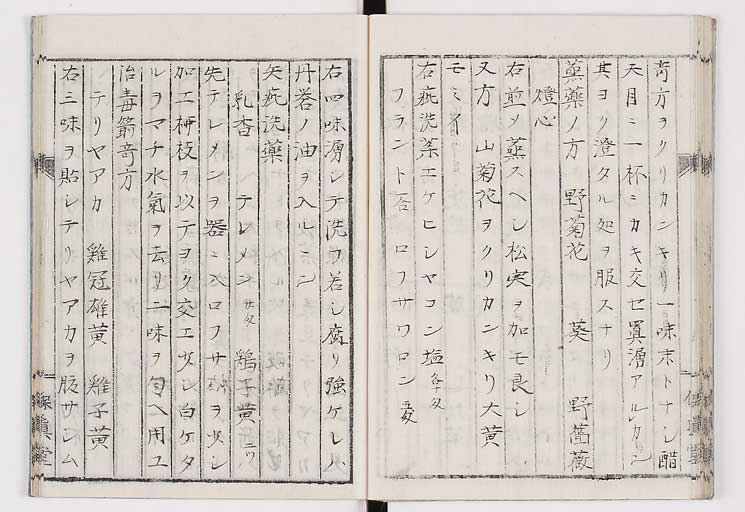 奇方ヲクリカンキリ一味末トナシ醋
天目ニ一杯ニカキ交セ置濁アルカシ
其ヨク澄タル処ヲ服スナリ
蒸藥ノ方 野菊花 葵 野薔薇
燈心
右並〆蒸スヘシ松実ヲ加モ良シ
又方 山菊花ヲクリカンキリ大黄
モミ
右疵洗薬エケヒシヤコン塩
フラント ロフサワロン
右四味湧シテ洗ヲ若シ腐リ強ケレハ
丹荅ノ油ヲ入ルニシ
矢疵洗藥
乳杳 テレメン 鶏子黄 二ワ
先テレメンヲ器ニ入ロフサ ヲ少シ
加工 枝ヲ以テヨク交エ 白ケタ
ルヲマチ水氣ヲ去リ二味ヲ匀ヘ用ユ
治毒箭奇方
テリヤアカ 雞冠雄黄 雞子黄
右三味ヲ貼シテリヤアカヲ服サシム